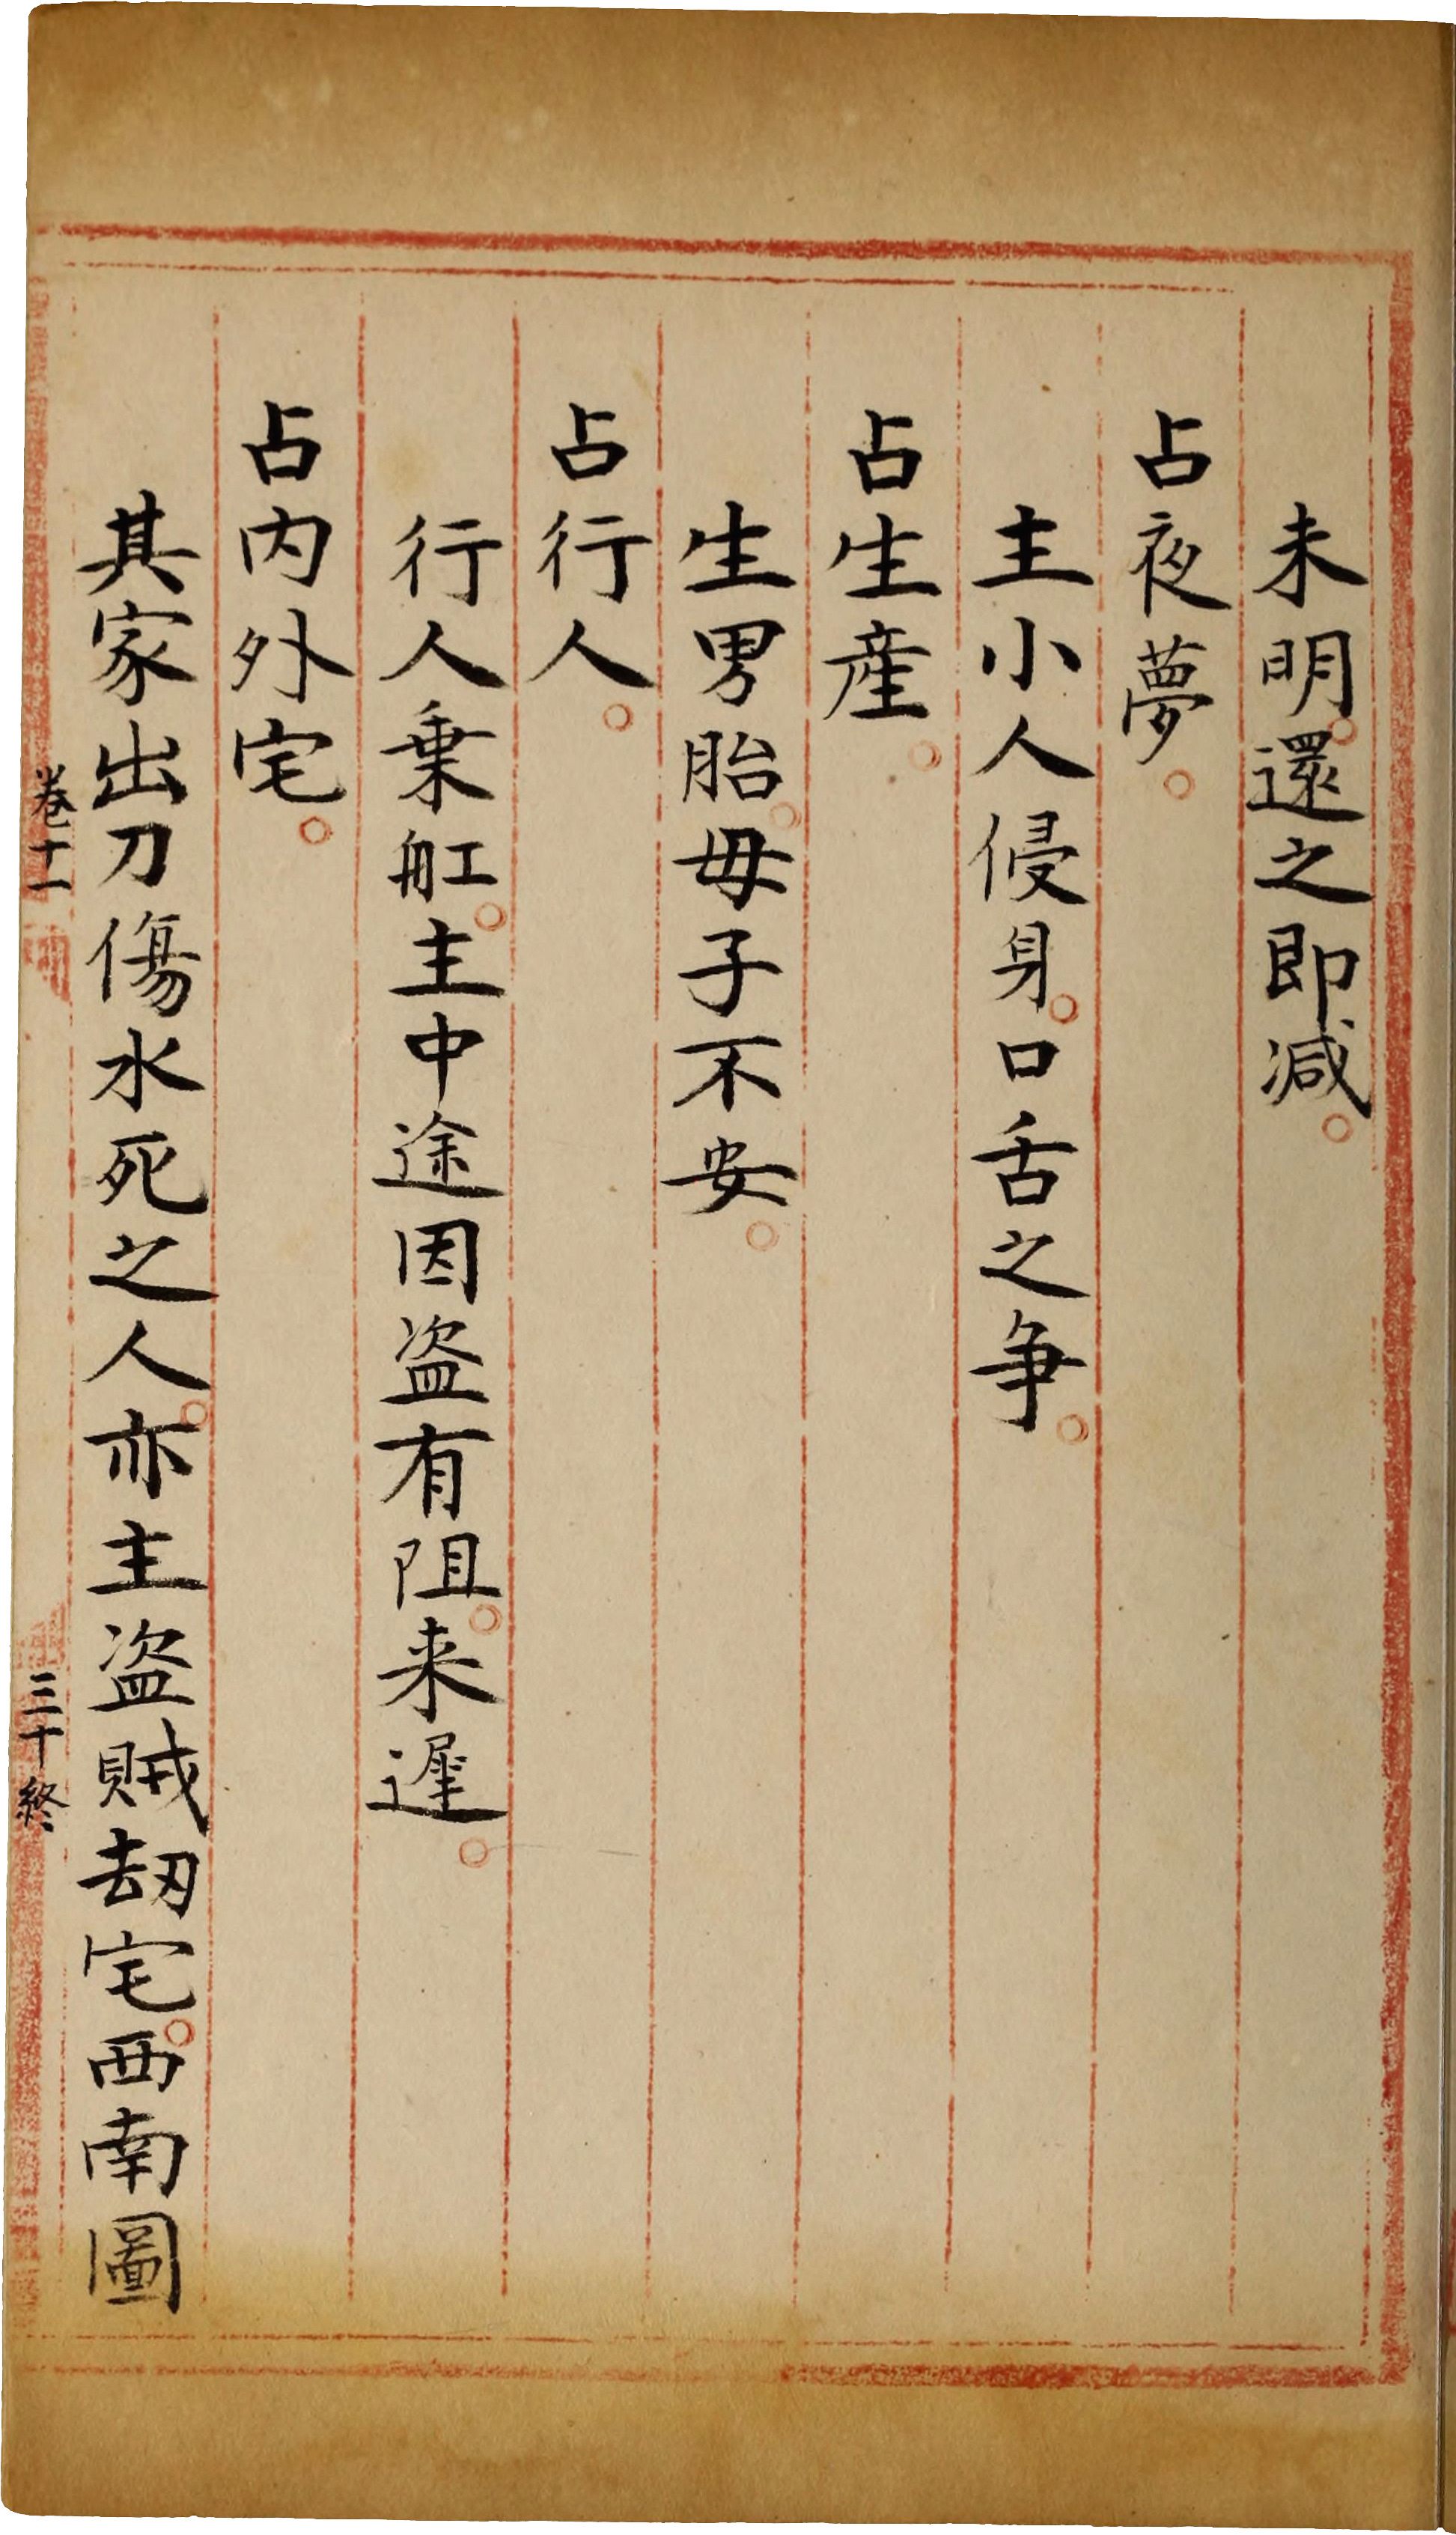 未明。還之即减。
占夜夢。
主小人侵身。口舌之爭。
占生產。
生男胎。母子不安。
占行人。
行人乗舡。主中途因盗有阻。来遲。
占内外宅。
其家出刀傷水死之人。亦主盗賊刼宅。西南圖
卷十一
三十終